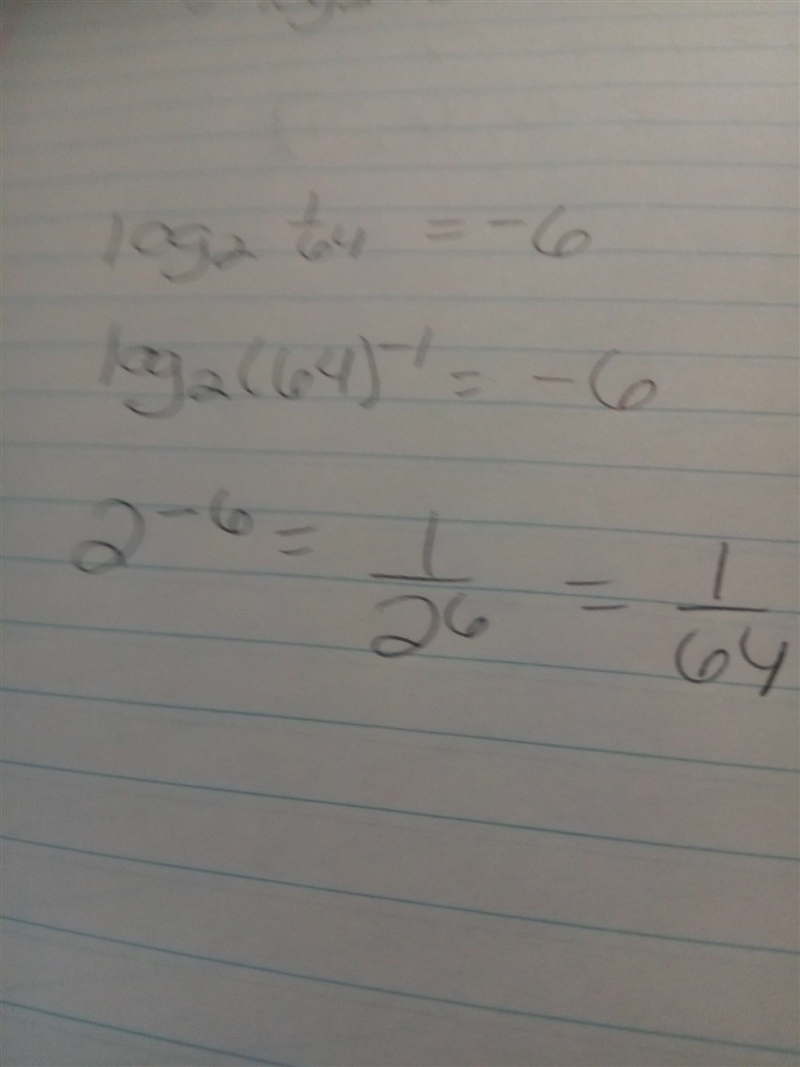 log₂ 1/64 = -6
log₂(64)⁻¹ = -6
2⁻⁶ = 1/26 = 1/64